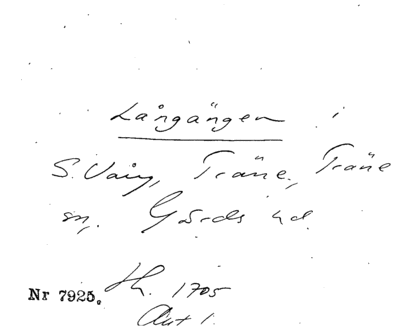 Långängen i
S. Vång, Träne, Träne
sn, Gärds hd.
Nr 7925. Hh. 1705
Akt 1.